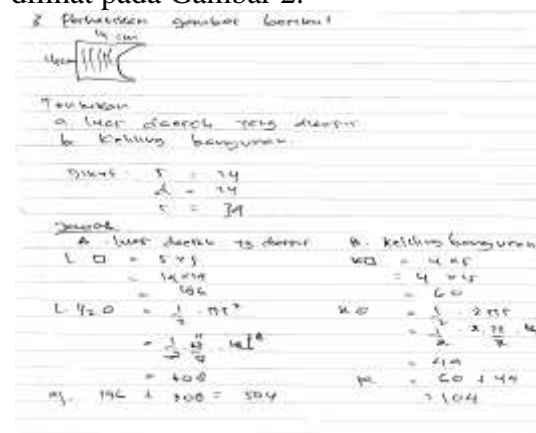 dilihat pada Gambar 2.
3 Perhatikan gambar berikut
14 cm
Tentukan
a. luas daerah yang diarsir
b. Keliling bangunan
Diket: s = 14
d = 14
r =
Jawab
A. luas daerah yg diarsir
L □ = s x s
= 14 x 14
= 196
L. 1/2 O = 1/2 . πr²
= 308
196 + 308 = 504
B. Keliling bangunan
K □ = 4 x s
= 4 x 15
= 60
K O = 1/2 . 2πr
= 44
60 + 44
= 104